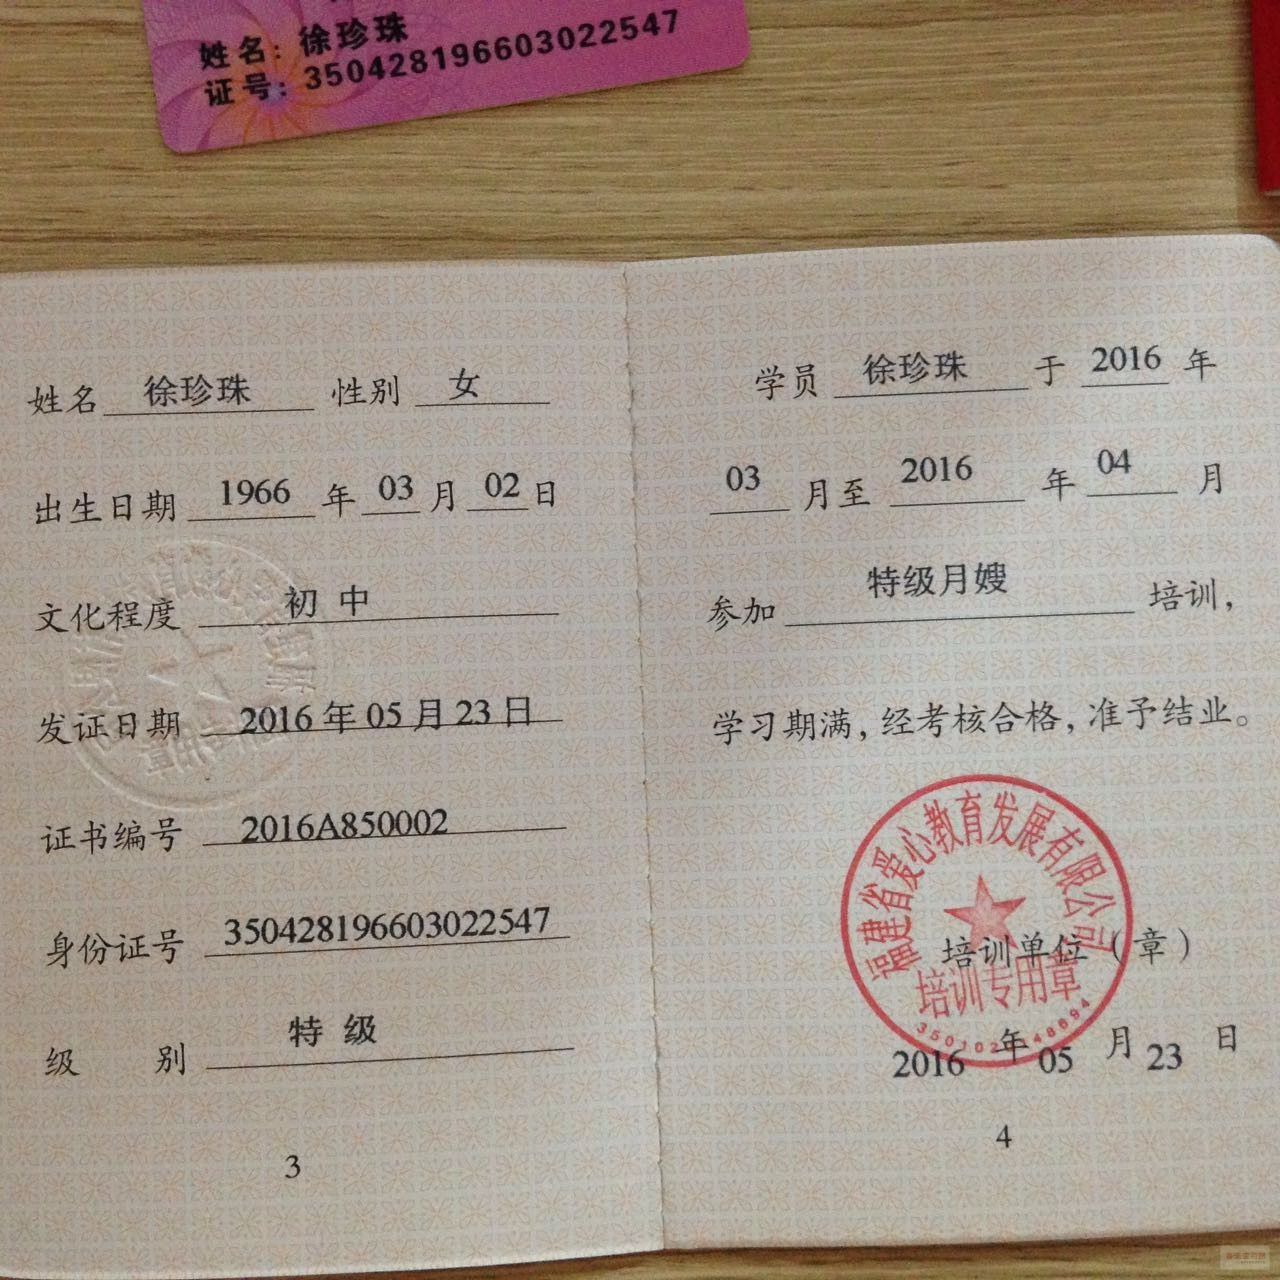 姓名：徐珍珠
证号：350428196603022547
姓名 徐珍珠 性别 女
出生日期 1966 年 03 月 02 日
文化程度 初 中
发证日期 2016 年 05 月 23 日
证书编号 2016A850002
身份证号 350428196603022547
级 别 特 级
3
学员 徐珍珠 于 2016 年
03 月至 2016 年 04 月
参加 特级月嫂 培训，
学习期满，经考核合格，准予结业。
福建省爱心教育发展有限公司
培训单位（章）
培训专用章
2016 年 05 月 23 日
4